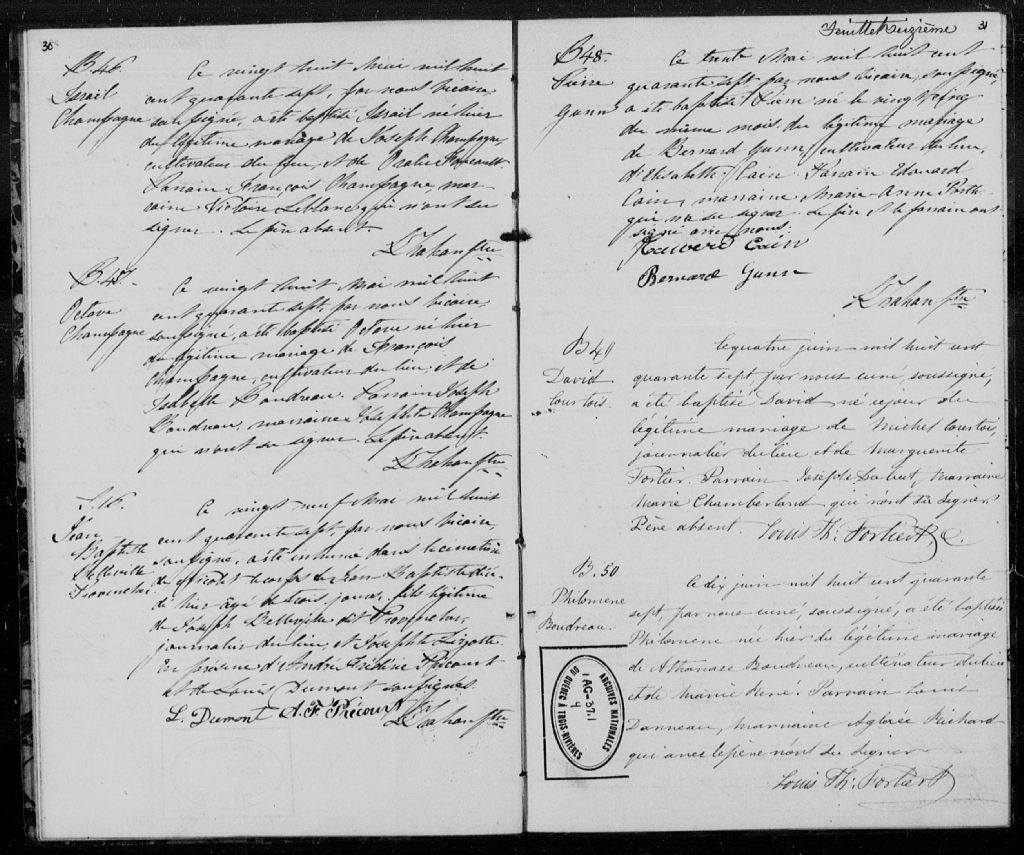 30
B 46.
Israil
Champagne
Ce vingt huit Mai mil huit
cent quarante sept, par nous vicaire
soussigné, a été baptisé Israil né hier
du légitime mariage de Joseph Champagne,
cultivateur du lieu, et de
Parrain François Champagne, mar-
raine Victoire Leblanc qui n'ont su
signer. Le père absent.
L. Trahan ptre
B. 47.-
Octave
Champagne
Ce vingt huit Mai mil huit
cent quarante sept, par nous vicaire
soussigné, a été baptisé Octave né hier
du légitime mariage de François
Champagne, cultivateur du lieu, et de
Isabelle Boudreau. Parrain Joseph
Boudreau, marraine Josephte Champagne
qui n'ont su signer. Le père absent.
L. Trahan ptre
Jean
Baptiste
Belleville
Provencher
Ce vingt neuf Mai mil huit
cent quarante sept, par nous vicaire,
soussigné, a été inhumé dans le cimetière
de Nicolet le corps de Jean Baptiste décé-
dé hier âgé de trois jours, fils légitime
de Joseph Belleville dit Provencher,
journalier du lieu, et Josephte Lizotte.
En présence d'André Frédéric Précourt
et de Louis Dumont soussignés.
L. Dumont A. F. Précourt L. Trahan ptre
Feuillet seizième
31
B 48.
Pierre
Gunn
Ce trente Mai mil huit cent
quarante sept par nous vicaire, soussigné
a été baptisé Pierre né le vingt cinq
du même mois du légitime mariage
de Bernard Gunn, cultivateur du lieu,
d'Elisabeth Cain. Parrain Edouard
Cain, marraine Marie Anne
qui n'a su signer. Le père et le parrain ont
signé avec nous.
Edward Cain
Bernard Gunn
L. Trahan ptre
B 49
David
Courtois.
Le quatre juin mil huit cent
quarante sept, par nous curé, soussigné,
a été baptisé David né ce jour du
légitime mariage de Michel Courtois,
journalier du lieu et de Marguerite
Fortier. Parrain Joseph Dubut, Marraine
Marie Chamberland qui n'ont su signer.
Père absent. Louis Th: Fortier Ptre
B. 50
Philomene
Boudreau.
Le dix juin mil huit cent quarante
sept, par nous curé, soussigné, a été baptisée
Philomene née hier du légitime mariage
de Athanase Boudreau, cultivateur du lieu
et de Marie René. Parrain Louis
Danneau, marraine Aglaée Richard
qui avec le père n'ont su signer
Louis Th: Fortier Ptre
ARCHIVES NATIONALES
IAC-37.1
4
DU QUÉBEC À TROIS-RIVIÈRES